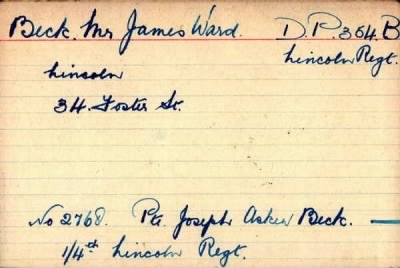 Beck. Mr James Ward. D.P. 364.B
Lincoln Regt.
Lincoln
34. Foster St.
No 2768. Pte. Joseph Asker Beck. —
1/4th Lincoln Regt.